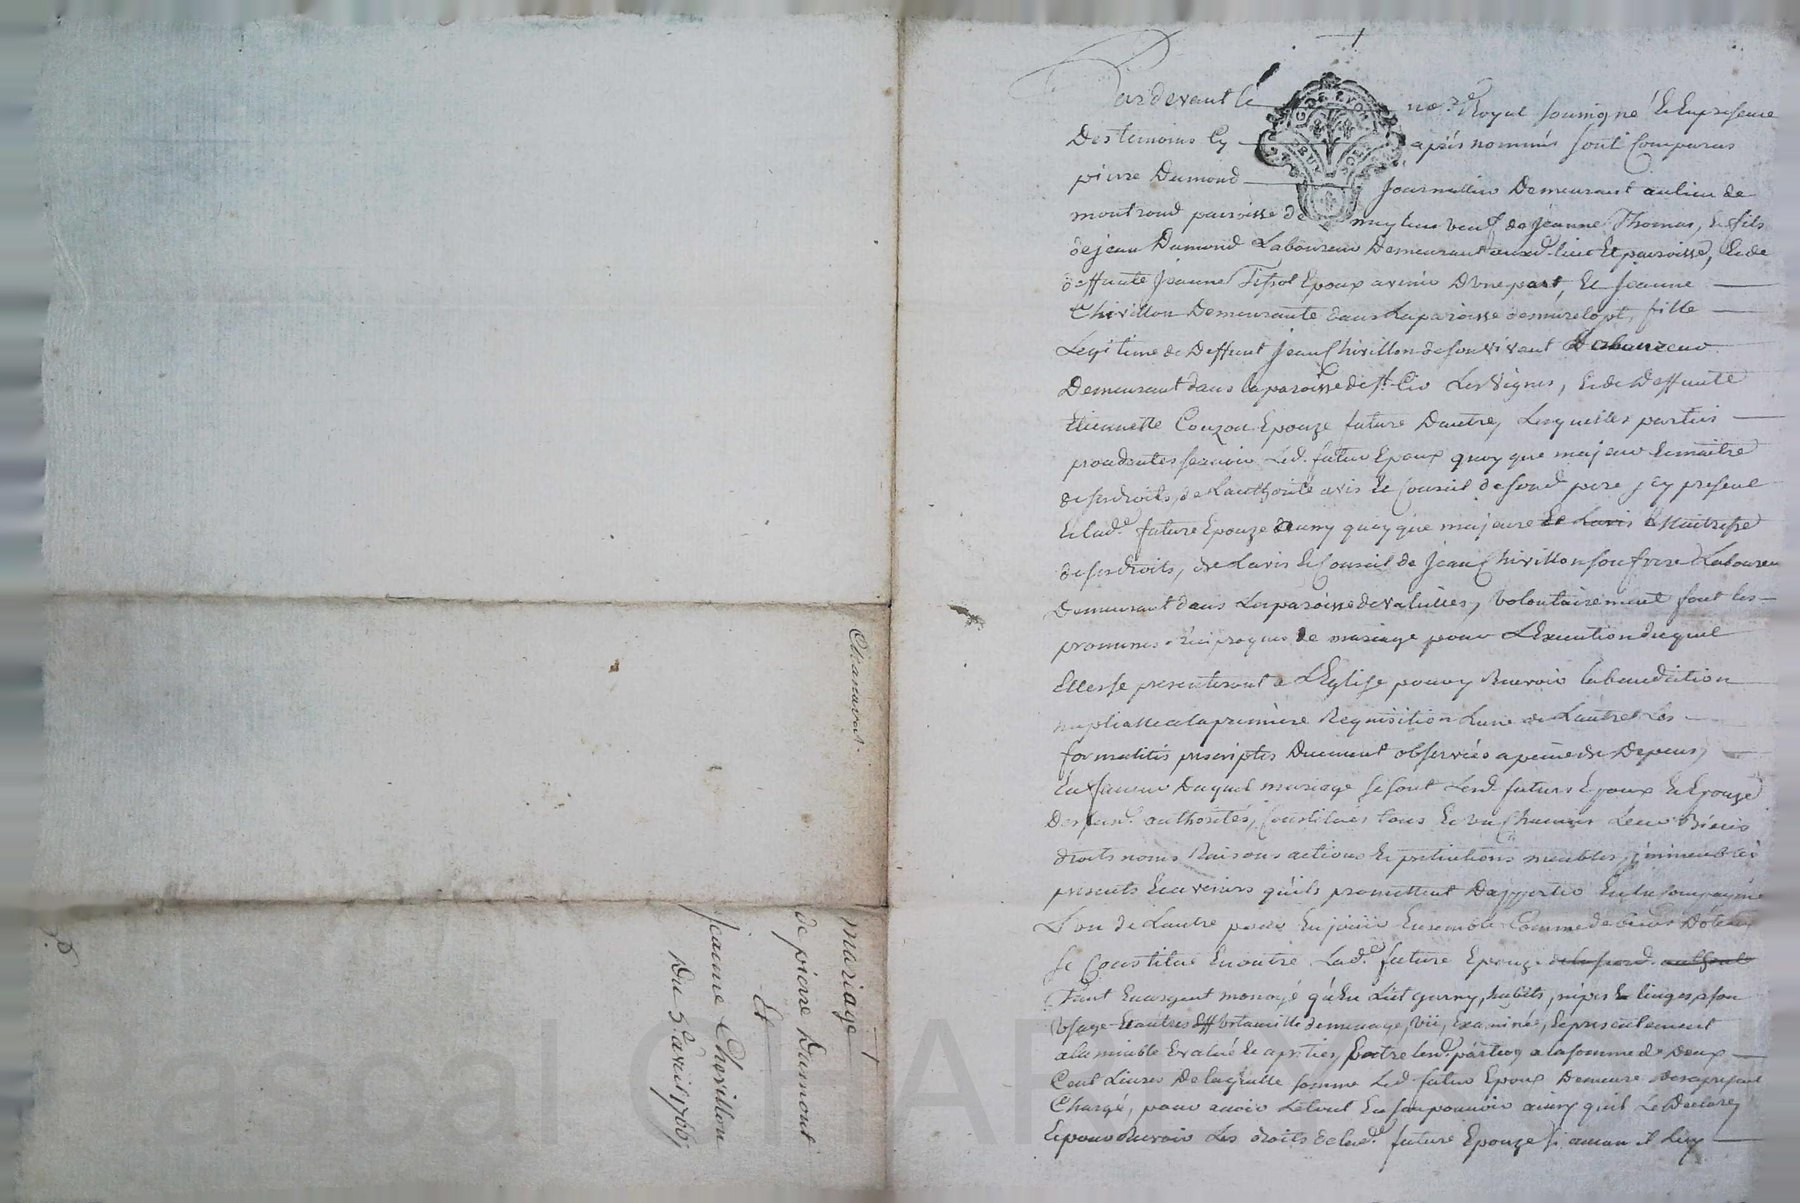 Pardevant le no.re Royal soussigné Et En presence
Des temoins Cy aprés nommés sont Comparus
pierre Dumond Journallier Demeurant au lieu de
montrond paroisse de veuf de Jeanne Thomas, & fils
de jean Dumond Laboureur Demeurant auxd. lieu Et paroisse, Et de
deffunte Jeanne Epoux avenir D'une part, Et Jeanne
Chirillon Demeurante dans La paroisse de fille
Legitime de Deffunt Jean Chirillon de son vivant Laboureur
Demeurant dans la paroisse de st. Cir Les Vignes, Et de Deffunte
Etiennette Couzon Epouze future D'autre, Lesquelles parties
procedantes scavoir Led. futur Epoux quoy que majeur Et maitre
de ses droits, de L'authorité avis Et Conseil de sond. pere icy present
Et lad.e future Epouze aussy quoy que majeure Et Lavis & Maitresse
de ses droits, de L'avis Et Conseil de Jean Chirillon son frere Laboureur
Demeurant dans La paroisse de valeilles, volontairement font les
promesses reciproques de mariage pour L'Execution duquel
Elles se presenteront a L'Eglise pour y Recevoir la benediction
nuptialle a la premiere Requisition L'une de L'autre Les
formalités prescriptes Duement observées a peine de Depens,
En faveur Duquel mariage se sont Lesd. futurs Epoux Et Epouze
Des sus.d authorités, Constitués tous Et un Chacuns Leurs Biens
droits noms Raisons actions Et pretentions meubles, immeubles
presents Et avenirs qu'ils promettent D'apporter En la Compagnie
L'un de L'autre pour En jouir Ensemble Comme de biens Dotaux
se Constitue En outre Lad.e future Epouze
Tant En argent monoyé qu'En Lict garny, habits, nipes & linges a son
Usage Et autres ustancille de menage, vü, Examinés, Et presentement
a la miable Evalué Et apretiés, Entre Lesd. parties a la somme de Deux
Cent Livres De laquelle somme Led. futur Epoux Demeure des a present
Chargé, pour avoir Le tout En son pouvoir ainsy qu'il Le Declare,
Et pour Recevoir Les droits de lad.e future Epouze si aucun il Luy
mariage
de pierre Dumont
Et
Jeanne Chevillon
Du 5e avril 1766,